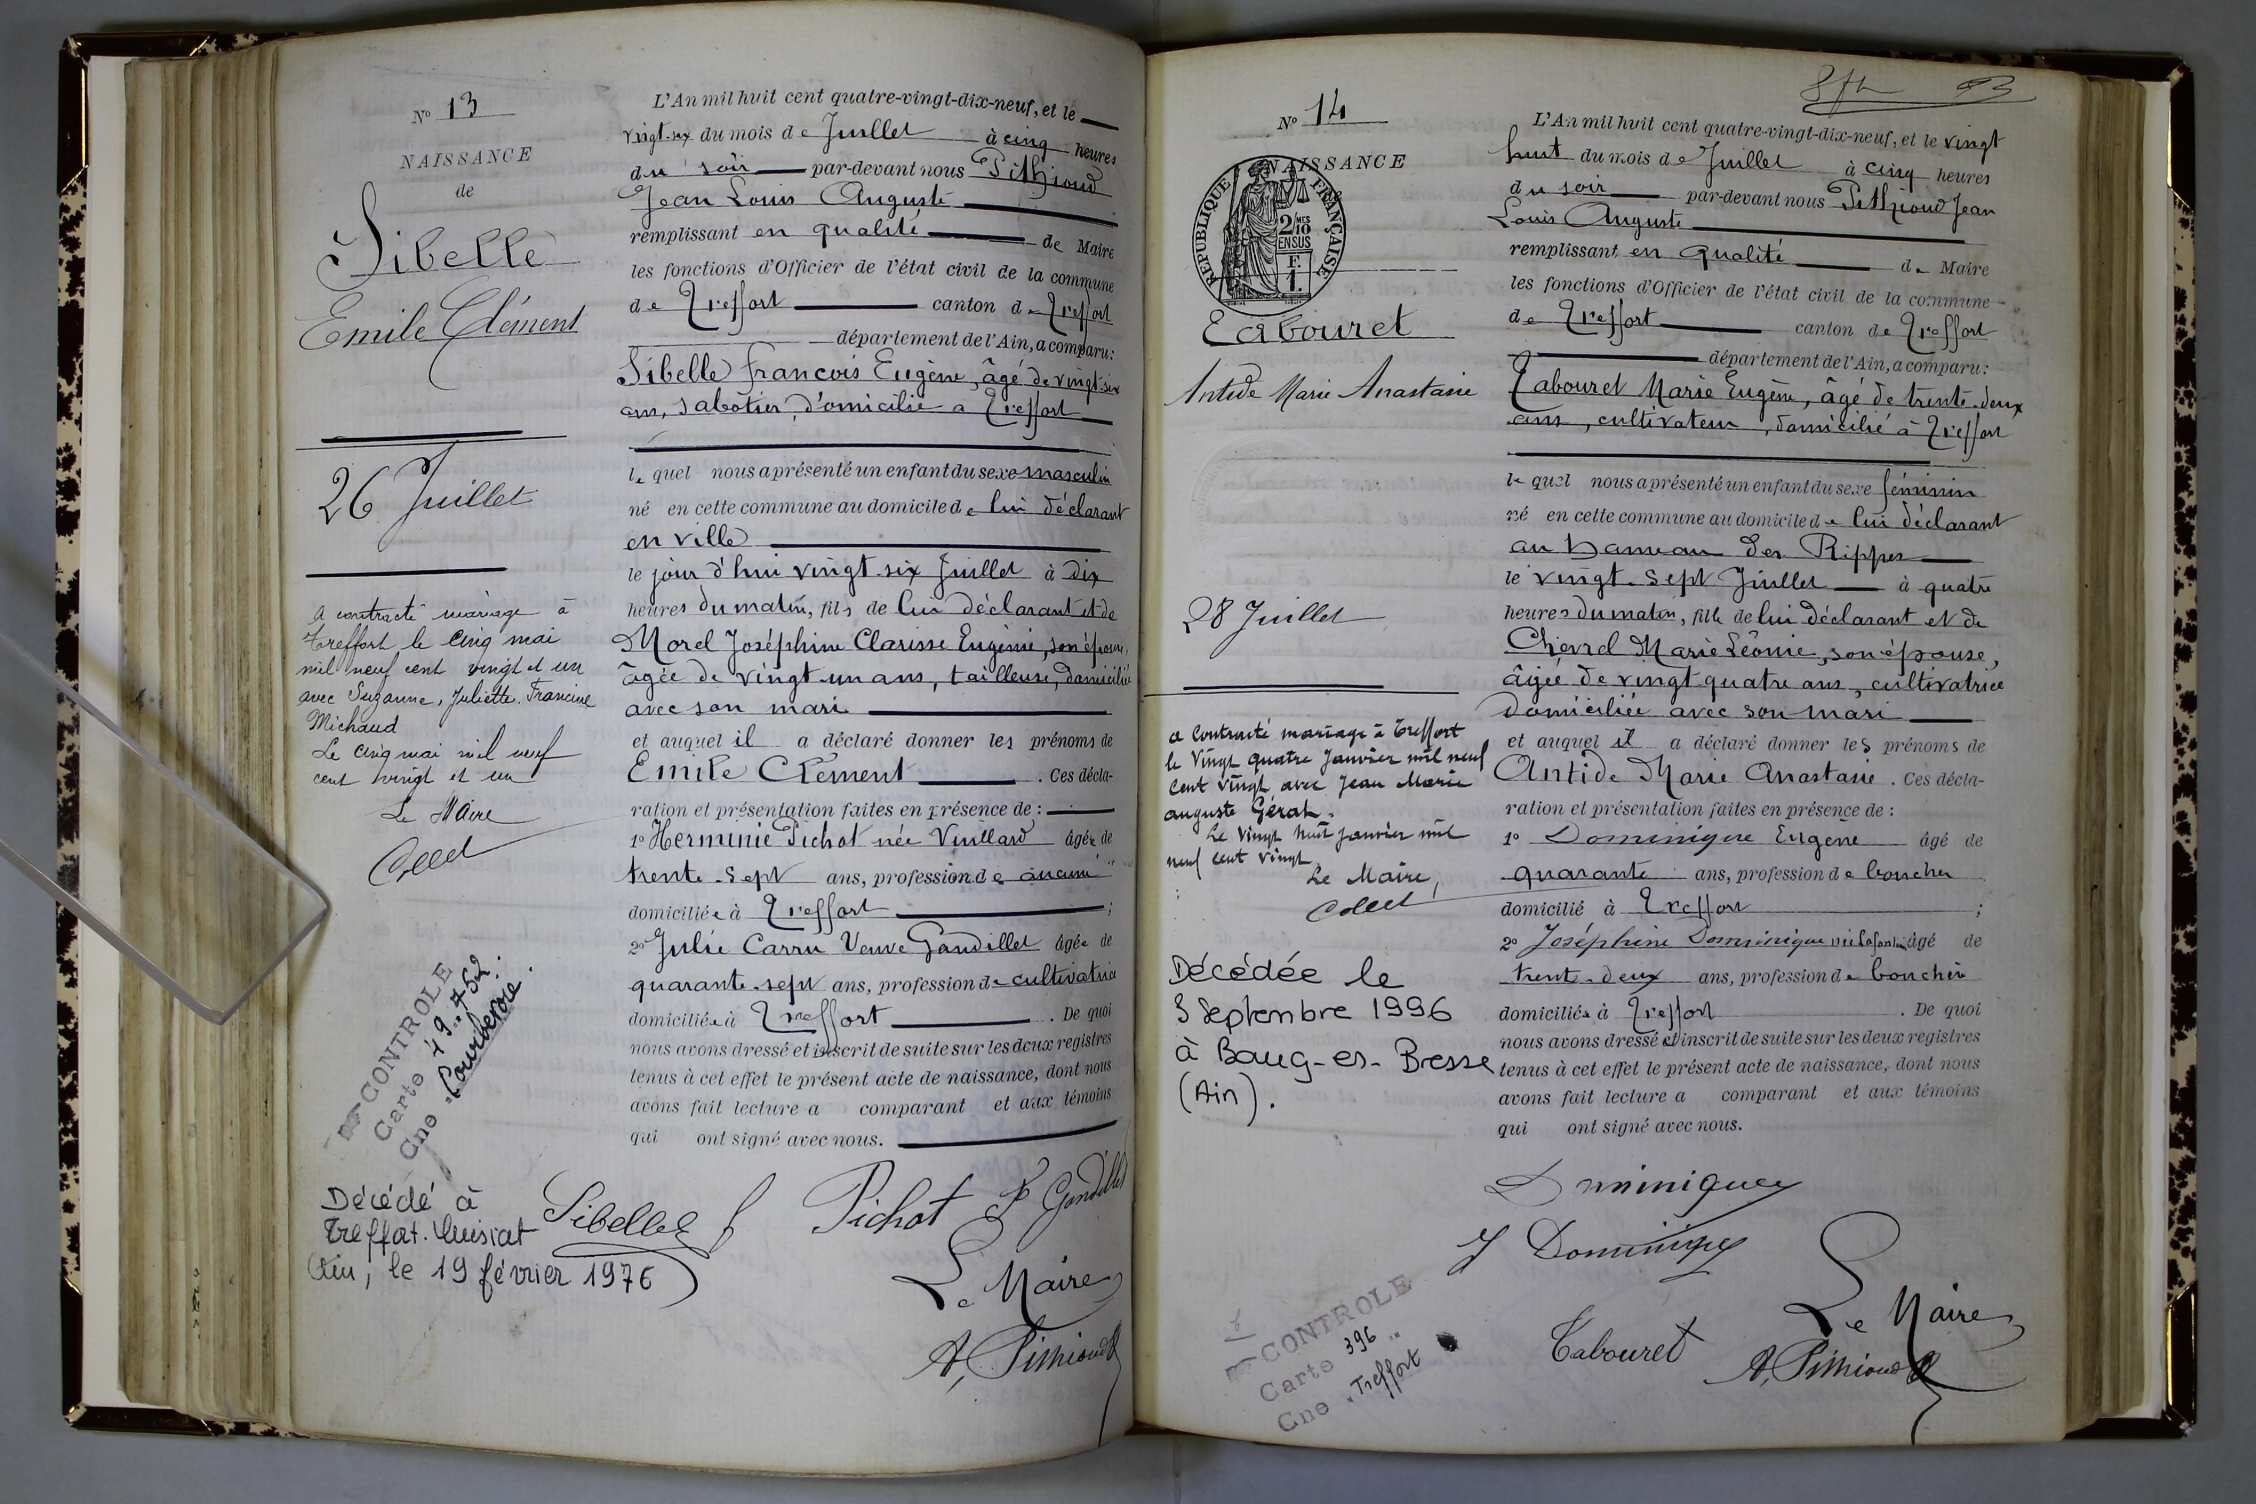 Nº 13
NAISSANCE
de
Sibelle
Emile Clément
26 Juillet
a contracté mariage à
Treffort le cinq mai
mil neuf cent vingt et un
avec Suzanne, Juliette, Francine
Michaud
Le cinq mai mil neuf
cent vingt et un
Le Maire
Collet
CONTROLE
Carte
Cne Courbevoie.
Décédé à
Treffort-Cuisiat
Ain, le 19 février 1976
L'An mil huit cent quatre-vingt-dix-neuf, et le
vingt-six du mois de Juillet à cinq heures
du soir par-devant nous Pithioud
Jean Louis Auguste
remplissant en qualité de Maire
les fonctions d'Officier de l'état civil de la commune
de Treffort canton de Treffort
département de l'Ain, a comparu:
Sibelle François Eugène, âgé de vingt-six
ans, sabotier, domicilié à Treffort
lequel nous a présenté un enfant du sexe masculin
né en cette commune au domicile de lui déclarant
en ville
le jour d'hui vingt-six Juillet à dix
heures du matin, fils de lui déclarant et de
Morel Joséphine Clarisse Eugénie, son épouse,
âgée de vingt-un ans, tailleuse, domiciliée
avec son mari
et auquel il a déclaré donner les prénoms de
Emile Clément . Ces décla-
ration et présentation faites en présence de :
1º Herminie Pichot née Vuillard âgée de
trente-sept ans, profession de aucune
domiciliée à Treffort ;
2º Julie Carru Veuve Gandillet âgée de
quarante-sept ans, profession de cultivatrice
domiciliée à Treffort . De quoi
nous avons dressé et inscrit de suite sur les deux registres
tenus à cet effet le présent acte de naissance, dont nous
avons fait lecture a comparant et aux témoins
qui ont signé avec nous.
Sibelle Pichot J Gandillet
Le Maire
A. Pithioud
Nº 14
NAISSANCE
REPUBLIQUE FRANÇAISE
2 MES
10
EN SUS
F.
1.
Tabouret
Antide Marie Anastasie
28 Juillet
a contracté mariage à Treffort
le vingt quatre Janvier mil neuf
cent vingt avec Jean Marie
auguste Gérat.
Le vingt huit Janvier mil
neuf cent vingt
Le Maire,
Collet
Décédée le
3 Septembre 1996
à Bourg-en-Bresse
(Ain).
CONTROLE
Carte 396
Cne Treffort
L'An mil huit cent quatre-vingt-dix-neuf, et le vingt
huit du mois de Juillet à cinq heures
du soir par-devant nous Pithioud Jean
Louis Auguste
remplissant en qualité de Maire
les fonctions d'Officier de l'état civil de la commune
de Treffort canton de Treffort
département de l'Ain, a comparu:
Tabouret Marie Eugène, âgé de trente-deux
ans, cultivateur, domicilié à Treffort
lequel nous a présenté un enfant du sexe féminin
né en cette commune au domicile de lui déclarant
au hameau des Rippes
le vingt-sept Juillet à quatre
heures du matin, fille de lui déclarant et de
Chevrel Marie Léonie, son épouse,
âgée de vingt quatre ans, cultivatrice
domiciliée avec son mari
et auquel il a déclaré donner les prénoms de
Antide Marie Anastasie . Ces décla-
ration et présentation faites en présence de :
1º Dominique Eugène âgé de
quarante ans, profession de boucher
domicilié à Treffort ;
2º Joséphine Dominique née âgé de
trente-deux ans, profession de bouchère
domiciliée à Treffort . De quoi
nous avons dressé et inscrit de suite sur les deux registres
tenus à cet effet le présent acte de naissance, dont nous
avons fait lecture a comparant et aux témoins
qui ont signé avec nous.
Dominique
J Dominique
Le Maire
Tabouret A. Pithioud